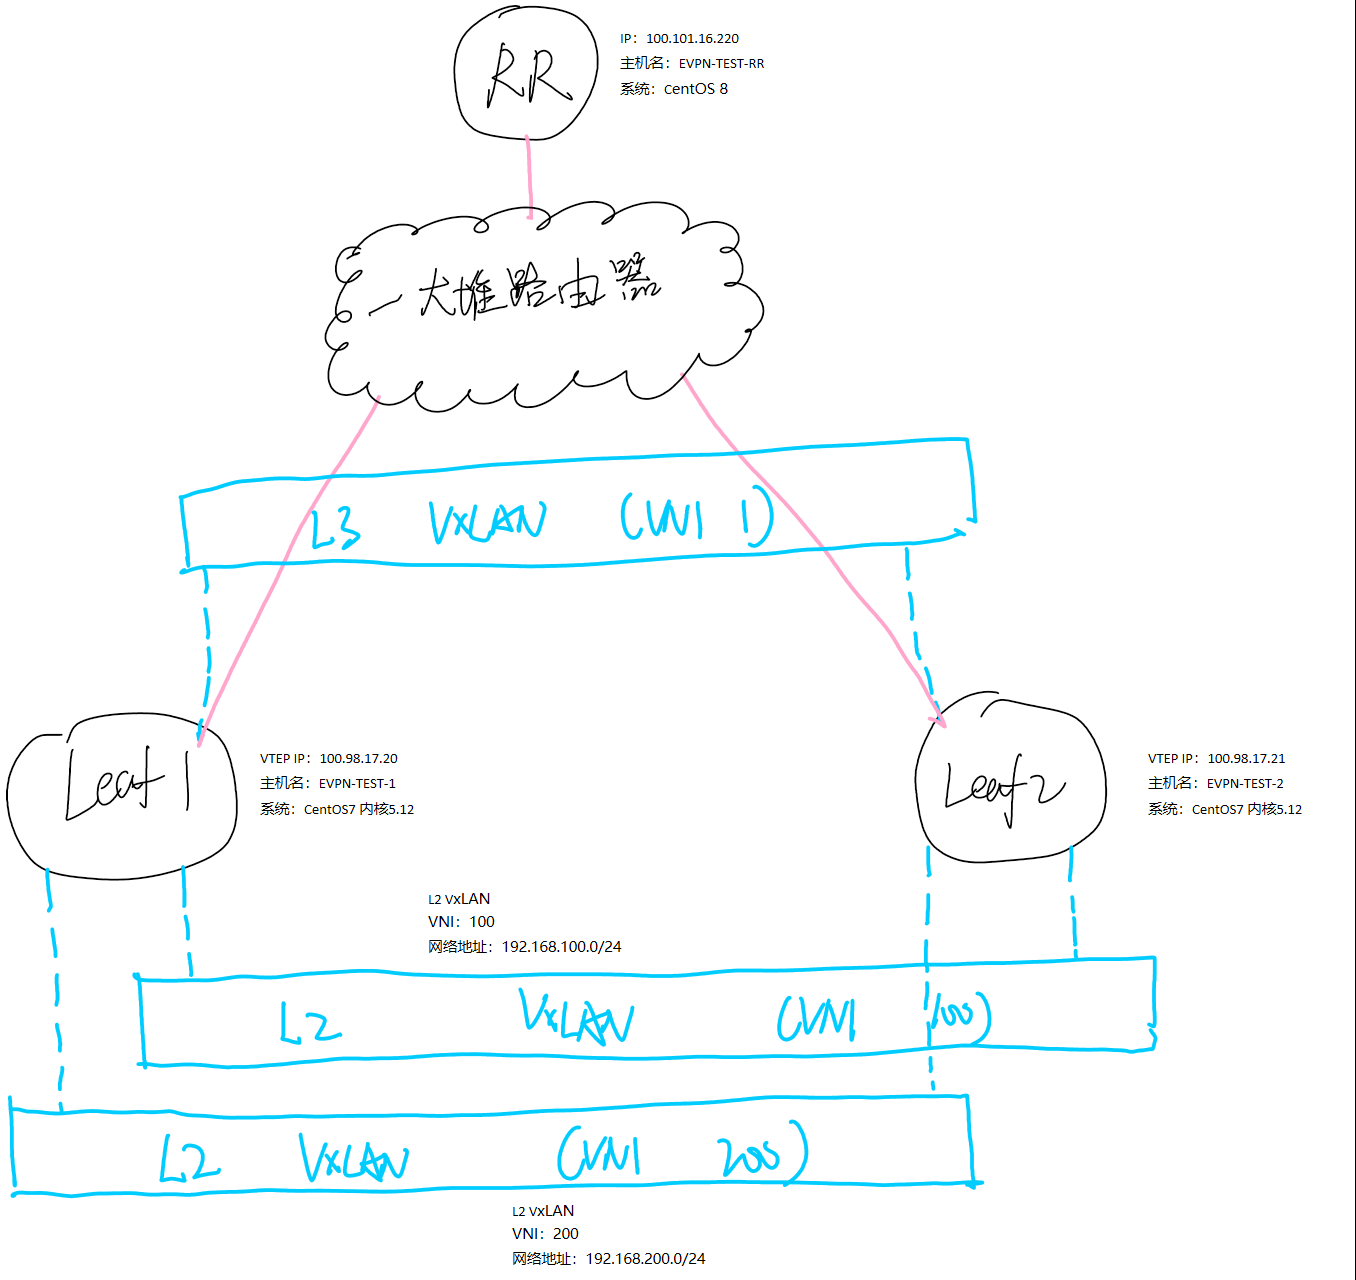 RR
IP：100.101.16.220
主机名：EVPN-TEST-RR
系统：centOS 8
一大堆路由器
L3 VxLAN (VNI 1)
Leaf 1
VTEP IP：100.98.17.20
主机名：EVPN-TEST-1
系统：CentOS7 内核5.12
Leaf 2
VTEP IP：100.98.17.21
主机名：EVPN-TEST-2
系统：CentOS7 内核5.12
L2 VxLAN
VNI：100
网络地址：192.168.100.0/24
L2 VxLAN (VNI 100)
L2 VxLAN (VNI 200)
L2 VxLAN
VNI：200
网络地址：192.168.200.0/24